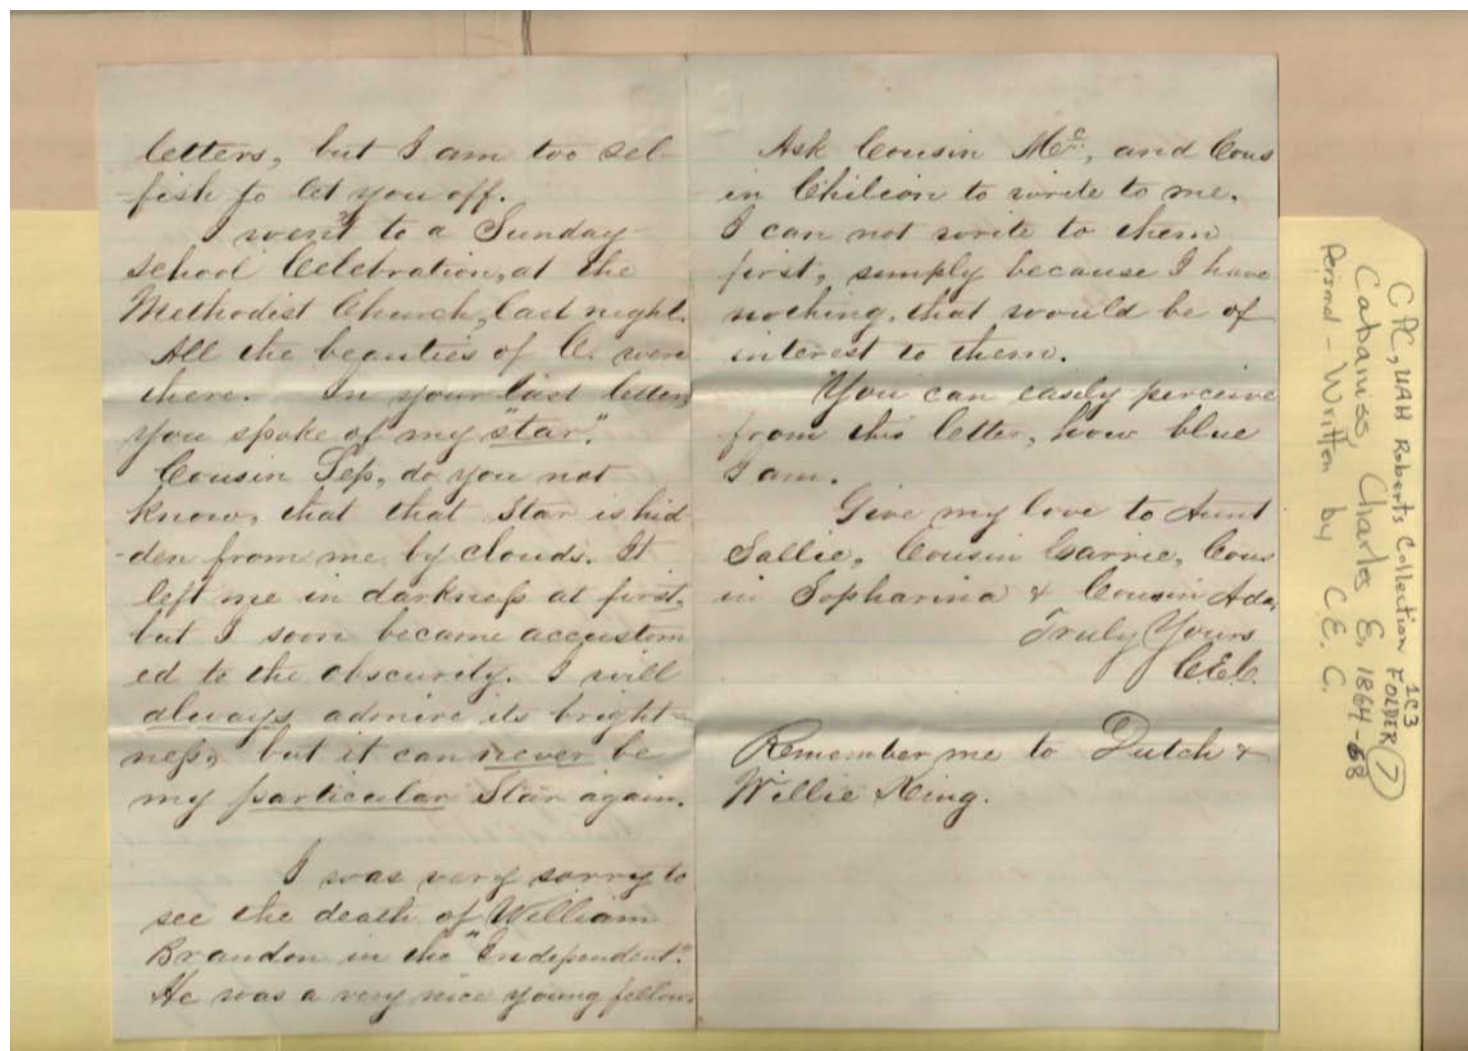 letters, but I am too sel-
fish to let you off.
I went to a Sunday-
School Celebration, at the
Methodist Church, last night.
All the beauties of C. were
there. In your last letter,
you spoke of my "star".
Cousin Sep, do you not
know, that that Star is hid-
-den from me by clouds. It
left me in darkness at first,
but I soon became accustom
ed to the obscurity. I will
always admire its bright-
ness, but it can never be
my particular Star again.
I was very sorry to
see the death of William
Brandon in the "Independent".
He was a very nice young fellow.
Ask Cousin Mc, and Cous
in Chilion to write to me.
I can not write to them
first, simply because I have
nothing, that would be of
interest to them.
You can easily perceive
from this letter, how blue
I am.
Give my love to Aunt
Sallie, Cousin Carrie, Cous
in Sopharina & Cousin Ada,
Truly Yours
C.E.C.
Remember me to Dutch &
Willie King.
CPC, UAH Roberts Collection 1C3 FOLDER 7
Cabaniss, Charles E. 1864-68
Personal - Written by C.E.C.